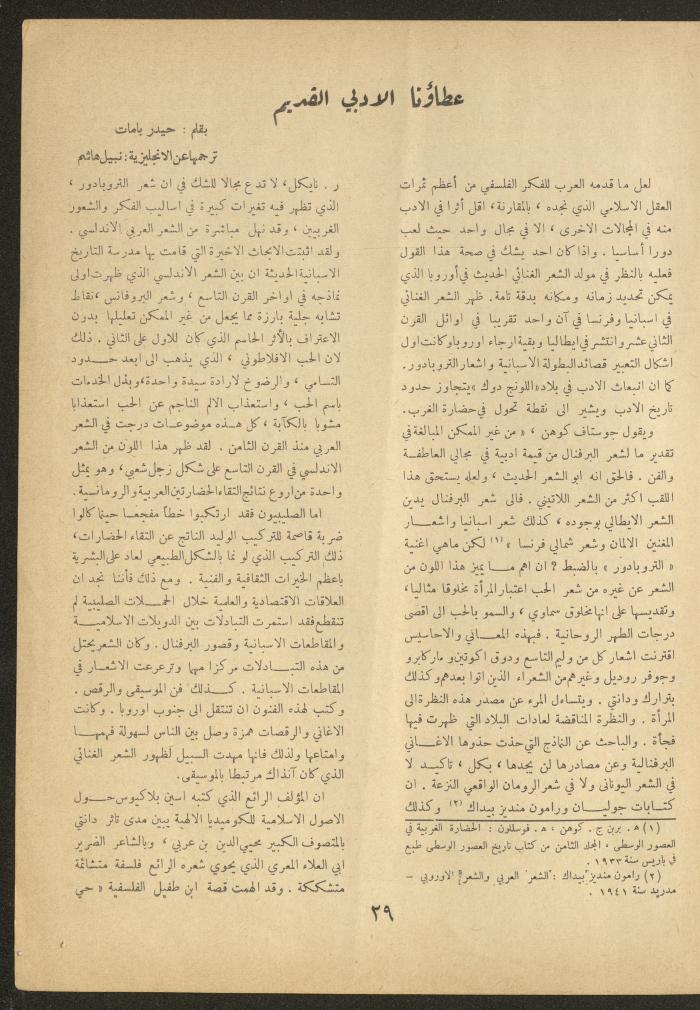 عطاؤنا الادبي القديم
بقلم : حيدر بامات
ترجمها عن الانجليزية : نبيل هاشم
لعل ما قدمه العرب للفكر الفلسفي من أعظم ثمرات
العقل الاسلامي الذي نجده ، بالمقارنة، اقل أثرا في الادب
منه في المجالات الاخرى ، الا في مجال واحد حيث لعب
دورا أساسيا . واذا كان احد يشك في صحة هذا القول
فعليه بالنظر في مولد الشعر الغنائي الحديث في أوروبا الذي
يمكن تحديد زمانه ومكانه بدقة تامة . ظهر الشعر الغنائي
في اسبانيا وفرنسا في آن واحد تقريبا في اوائل القرن
الثاني عشر وانتشر في ايطاليا وبقية ارجاء اوروبا وكانت اول
اشكال التعبير قصائد البطولة الاسبانية واشعار التروبادور .
كما ان انبعاث الادب في بلاد « اللونج دوك » يتجاوز حدود
تاريخ الادب ويشير الى نقطة تحول في حضارة الغرب.
ويقول جوستاف كوهن ، « من غير الممكن المبالغة في
تقدير ما لشعر البرفنال من قيمة ادبية في مجالي العاطفة
والفن . فالحق انه ابو الشعر الحديث ، ولعله يستحق هذا
اللقب اكثر من الشعر اللاتيني . فالى شعر البرفنال يدين
الشعر الايطالي بوجوده ، كذلك شعر اسبانيا واشعار
المغنين الالمان وشعر شمالي فرنسا » (١) لكن ماهي اغنية
« التروبادور » بالضبط ? ان اهم ما يميز هذا اللون من
الشعر عن غيره من شعر الحب اعتبار المرأة مخلوقا مثاليا،
وتقديسها على انها مخلوق سماوي ، والسمو بالحب الى اقصى
درجات الطهر الروحانية . فبهذه المعاني والاحاسيس
اقترنت اشعار كل من وليم التاسع ودوق اكوتين و ماركابرو
وجوفر روديل وغيرهم من الشعراء الذين اتوا بعدهم وكذلك
بترارك ودانتي . ويتساءل المرء عن مصدر هذه النظرة الى
المرأة . والنظرة المناقضة لعادات البلاد التي ظهرت فيها
فجأة . والباحث عن النماذج التي حذت حذوها الاغاني
البرفنالية وعن مصادرها لن يجدها ، بكل ، تاكيد لا
في الشعر اليوناني ولا في شعر الرومان الواقعي النزعة . ان
كتابات جوليان ورامون منديز بيداك (٢) وكذلك
(١) ه . برين ج . كوهن ، ه . فوسللون : الحضارة الغربية في
العصور الوسطى ، المجلد الثامن من كتاب تاريخ العصور الوسطى طبع
في باريس سنة ١٩٣٣ .
(٢) رامون منديز بيداك : الشعر العربي والشعر الاوروبي –
مدريد سنة ١٩٤١ .
ر . نايكل، لا تدع مجالا للشك في ان شعر التروبادور ،
الذي تظهر فيه تغيرات كبيرة في اساليب الفكر والشعور
الغربيين ، وقد نهل مباشرة من الشعر العربي الاندلسي .
ولقد اثبتت الابحاث الاخيرة التي قامت بها مدرسة التاريخ
الاسبانية الحديثة ان بين الشعر الاندلسي الذي ظهرت اولى
نماذجه في اواخر القرن التاسع ، وشعر البروفانس ، نقاط
تشابه جلية بارزة مما يجعل من غير الممكن تعليلها بدون
الاعتراف بالأثر الحاسم الذي كان للاول على الثاني . ذلك
لان الحب الافلاطوني ، الذي يذهب الى ابعد حدود
التسامي ، والرضوخ لارادة سيدة واحدة، وبذل الخدمات
باسم الحب ، واستعذاب الالم الناجم عن الحب استعذابا
مشوبا بالكآبة ، كل هذه موضوعات درجت في الشعر
العربي منذ القرن الثامن . لقد ظهر هذا اللون من الشعر
الاندلسي في القرن التاسع على شكل زجل شعبي، وهو يمثل
واحدة من اروع نتائج التقاء الحضارتين العربية والرومانسية .
اما الصليبيون فقد ارتكبوا خطأ مفجعا حينما كالوا
ضربة قاصمة للتركيب الوليد الناتج عن التقاء الحضارات ،
ذلك التركيب الذي لو نما بالشكل الطبيعي لعاد على البشرية
باعظم الخيرات الثقافية والفنية . ومع ذلك فأننا نجد ان
العلاقات الاقتصادية والعلمية خلال الحملات الصليبية لم
تنقطع فقد استمرت التبادلات بين الدويلات الاسلامية
والمقاطعات الاسبانية وقصور البرفنال . وكان الشعر يحتل
من هذه التبادلات مركزا مهما وترعرعت الاشعار في
المقاطعات الاسبانية . كذلك فن الموسيقى والرقص .
وكتب لهذه الفنون ان تنتقل الى جنوب اوروبا . وكانت
الاغاني والرقصات همزة وصل بين الناس لسهولة فهمها
وامتاعها ولذلك فانها مهدت السبيل لظهور الشعر الغنائي
الذي كان آنذاك مرتبطا بالموسيقى.
ان المؤلف الرائع الذي كتبه اسين بلاكيوس حول
الاصول الاسلامية للكوميديا الالهية يبين مدى تاثر دانتي
بالمتصوف الكبير محيي الدين بن عربي ، وبالشاعر الضرير
ابي العلاء المعري الذي يحوي شعره الرائع فلسفة متشائمة
متشككة . وقد الهمت قصة ابن طفيل الفلسفية « حي
٢٩